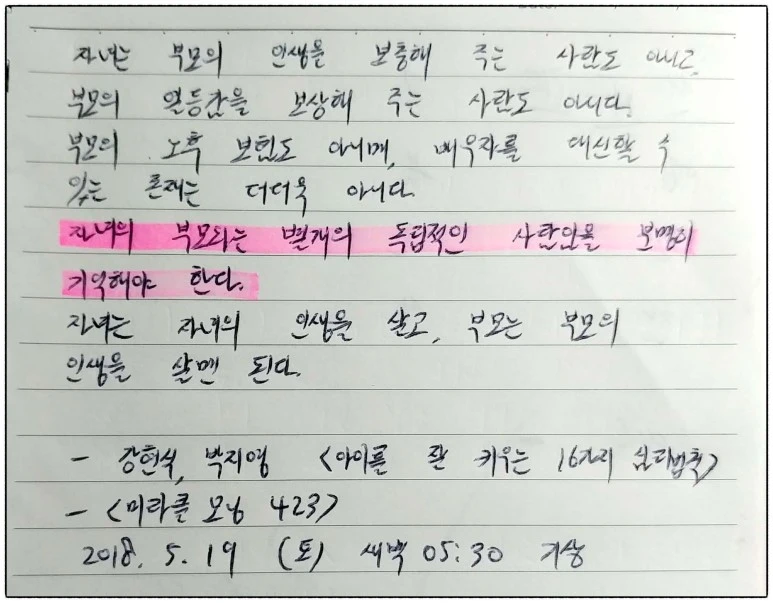 자녀는 부모의 인생을 보충해 주는 사람도 아니고,
부모의 열등감을 보상해 주는 사람도 아니다.
부모의 노후 보험도 아니며, 배우자를 대신할 수
있는 존재는 더더욱 아니다.
자녀의 부모와는 별개의 독립적인 사람임을 분명히
기억해야 한다.
자녀는 자녀의 인생을 살고, 부모는 부모의
인생을 살면 된다.
- 강현식, 박지영 <아이를 잘 키우는 16가지 심리법칙>
- <미라클 모닝 423>
2018. 5. 19 (토) 새벽 05:30 기상